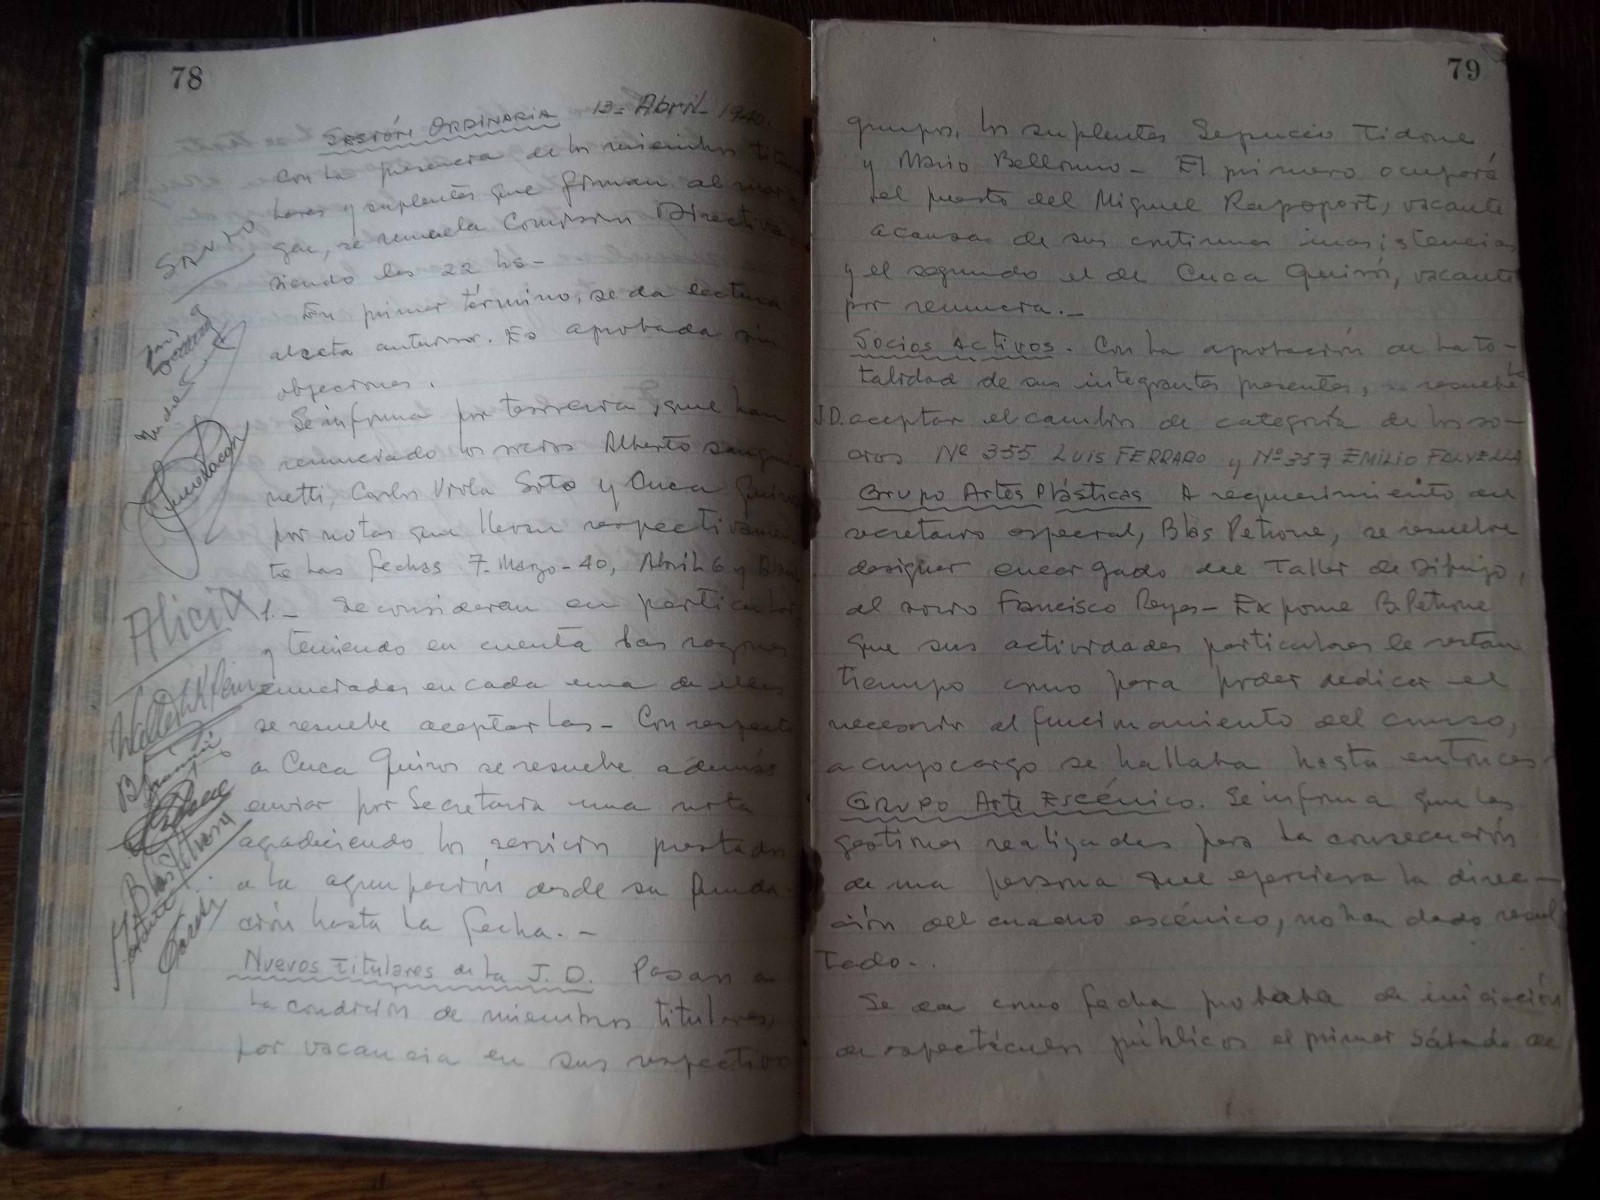 78
SESIÓN ORDINARIA 13= Abril- 1940.
Con la presencia de los miembros titu-
lares y suplentes que firman al mar-
gen, se reunela Comisión Directiva,
siendo las 22 hs-
En primer término, se da lectura
al acta anterior. Es aprobada sin
objeciones.
Se informa por tesorería, que han
renunciado los socios Alberto Sangui-
netti, Carlos Viola Soto y Cuca Quiros
por notas que llevan respectivamen-
te las fechas 7-Marzo-40, Abril 6 y Abril
1.- Se consideran en particular
y teniendo en cuenta las razones
enunciadas en cada una de ellas
se resuelve aceptarlas- Con respecto
a Cuca Quiros se resuelve además
enviar por Secretaria una nota
agradeciendo los servicios prestados
a la agrupación desde su funda-
ción hasta la fecha.-
Nuevos titulares de la J.D. Pasan a
la condición de miembros titulares,
por vacancia en sus respectivos
SANTO
Alicia
Blas
79
grupos, los suplentes Tidone
y Mario Bellomo- El primero ocupará
el puesto del Miguel Rapoport, vacante
a causa de sus continuas inasistencias
y el segundo el de Cuca Quirós, vacante
por renuncia.-
Socios Activos. Con la aprobación de la to-
talidad de sus integrantes presentes, resuelve la
J.D. aceptar el cambio de categoría de los so-
cios Nº 355 LUIS FERRARO y Nº 357 EMILIO
Grupo Artes Plásticas A requerimiento del
secretario especial, Blas Petrone, se resuelve
designar encargado del Taller de Dibujo,
al socio Francisco Reyes- Expone B. Petrone
que sus actividades particulares le restan
tiempo como para poder dedicar el
necesario al funcionamiento del curso,
a cuyo cargo se hallaba hasta entonces-
Grupo Arte Escénico. Se informa que las
gestiones realizadas para la consecución
de una persona que ejerciera la direc-
ción del cuadro escénico, no han dado resul
tado..
Se da como fecha probable de iniciación
de espectáculos públicos el primer sábado de